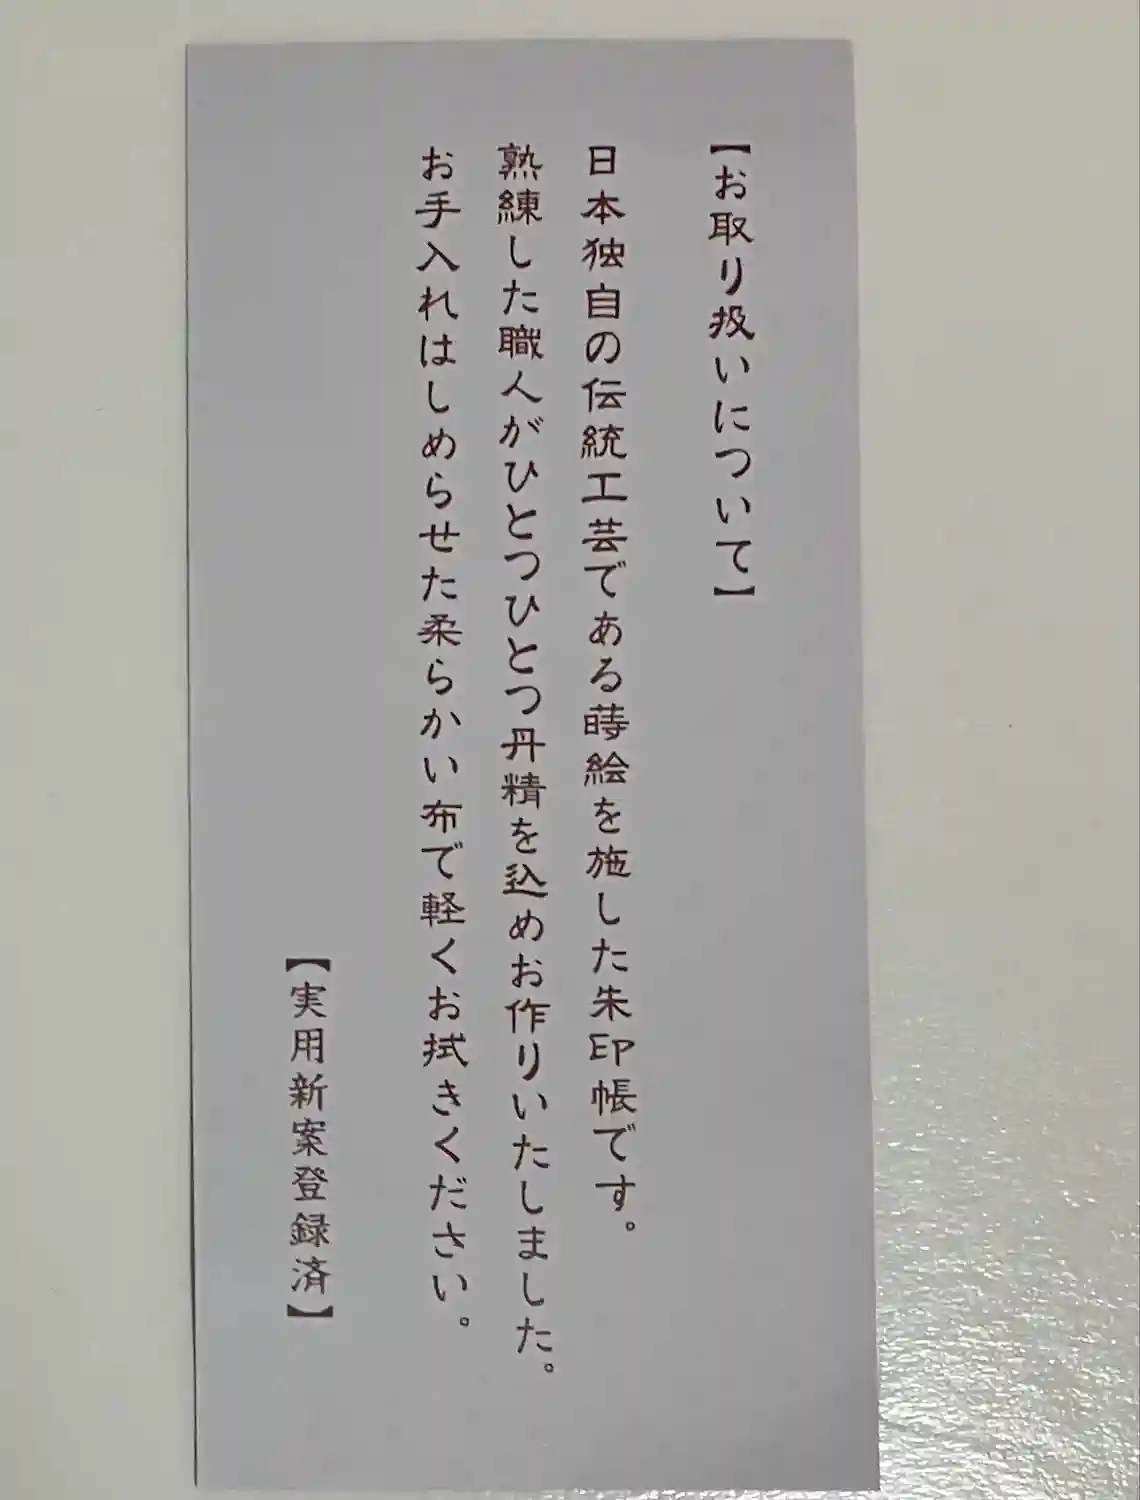 【お取り扱いについて】
日本独自の伝統工芸である蒔絵を施した朱印帳です。
熟練した職人がひとつひとつ丹精を込めお作りいたしました。
お手入れはしめらせた柔らかい布で軽くお拭きください。
【実用新案登録済】